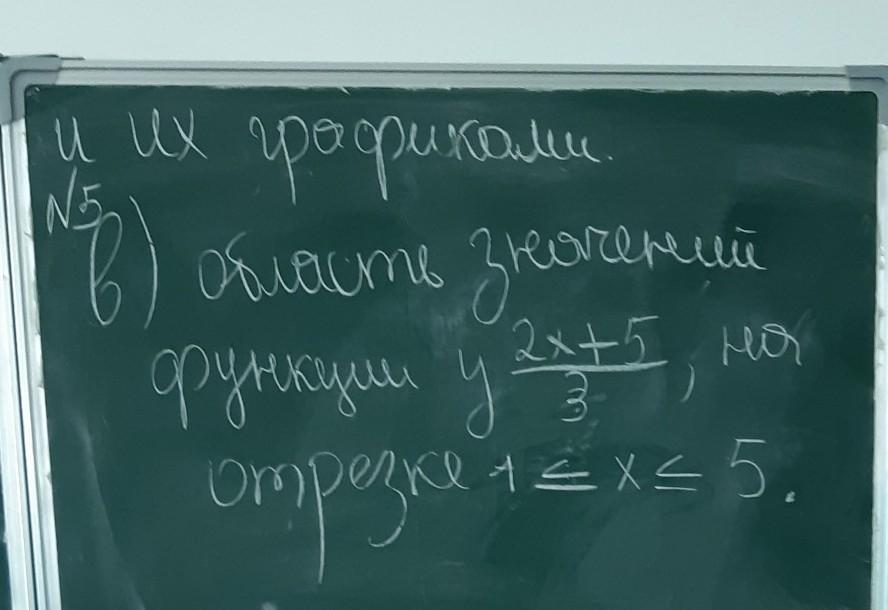 и их графиками.
№5
в) область значений
функции y \frac{2x+5}{3}, на
отрезке 1 ≤ x ≤ 5.